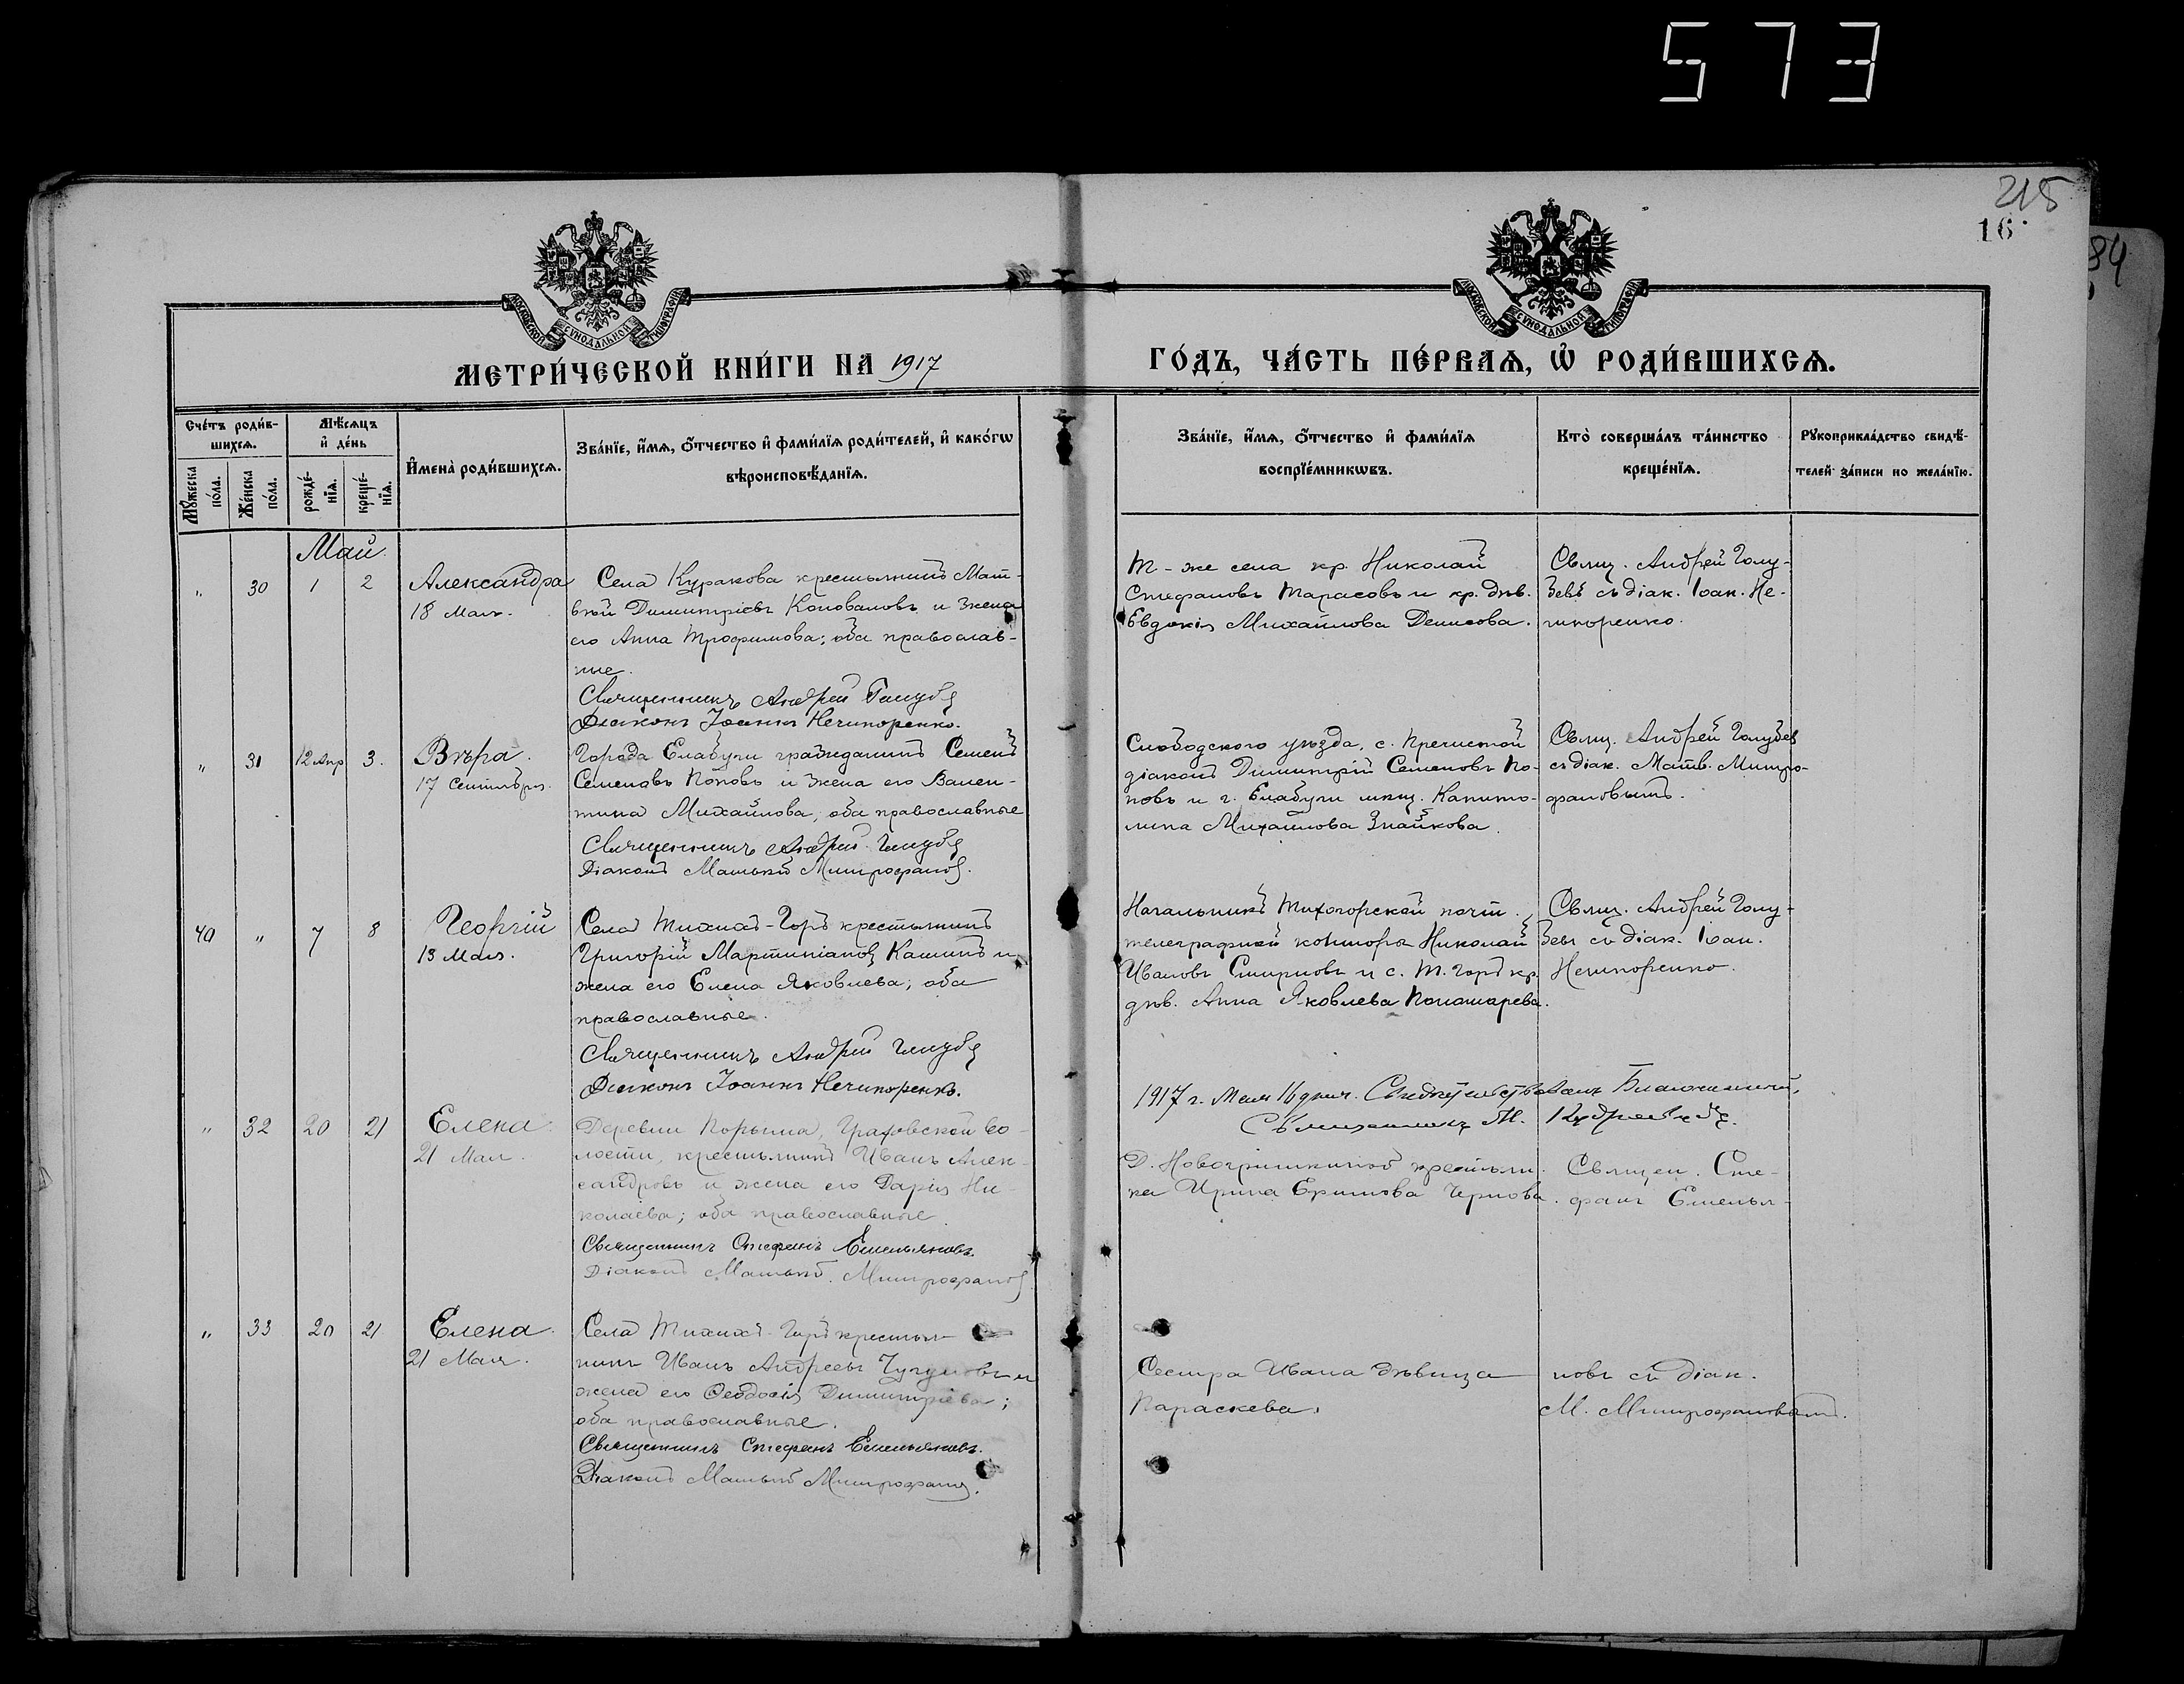 573
215
16
84
МОСКОВСКОЙ СѴНОДАЛЬНОЙ ТИПОГРАФІИ
МОСКОВСКОЙ СѴНОДАЛЬНОЙ ТИПОГРАФІИ
МЕТРИ́ЧЕСКОЙ КНИ́ГИ НА 1917 ГО́ДЪ, ЧА́СТЬ ПЕ́РВАѦ, Ѡ҆ РОДИ́ВШИХСѦ.
Сче́тъ роди́в-
шихсѧ.
Мꙋ́жеска по́ла.
Же́нска по́ла.
Мѣ́сѧцъ
и҆ де́нь
рожде́-
нїѧ.
креще́-
нїѧ.
И҆мена̀ роди́вшихсѧ.
Зва́нїе, и҆́мѧ, ѻ҆́тчество и҆ фами́лїѧ роди́телей, и҆ како́гѡ
вѣроисповѣ́данїѧ.
Зва́нїе, и҆́мѧ, ѻ҆́тчество и҆ фами́лїѧ
воспрїе́мникѡвъ.
Кто̀ соверша́лъ та́инство
креще́нїѧ.
Рꙋкоприкла́дство свидѣ́-
телей за́писи по жела́нїю.
Май.
" 30 1 2 Александра
18 Мая.
Села Куракова крестьянинъ Мат-
вѣй Димитріевъ Коноваловъ и жена
его Анна Трофимова; оба православ-
ные.
Священникъ Андрей Голубев
Диаконъ Іоаннъ Нечипоренко.
Т-же села кр. Николай
Стефановъ Тарасовъ и кр. дѣв.
Евдокія Михайлова Денисова.
Свящ. Андрей Голу-
бевъ съ діак. Іоан. Не-
чипоренко.
" 31 12 Апр 3. Вѣра.
17 Сентября.
Города Елабуги гражданинъ Семенъ
Семеновъ Поповъ и жена его Вален-
тина Михайлова; оба православные
Священникъ Андрей Голубев
Діаконъ Матвѣй Митрофанов.
Слободского уѣзда, с. Пречистой
діаконъ Димитрій Семеновъ По-
повъ и г. Елабуги мѣщ. Капито-
лина Михайлова Знайкова.
Свящ. Андрей Голубев
съ діак. Матв. Митро-
фановымъ.
40 " 7 8 Георгій
13 Мая.
Села Тихихъ-Горъ крестьянинъ
Григорій Мартиніановъ Кашинъ и
жена его Елена Яковлева; оба
православные.
Священникъ Андрей Голубев
Диаконъ Іоаннъ Нечипоренко.
Начальникъ Тихогорской почт.
телеграфной конторы Николай
Ивановъ Смирновъ и с. Т. Горъ кр.
дѣв. Анна Яковлева Пономарева.
Свящ. Андрей Голу-
бевъ съ діак. Іоан.
Нечипоренко.
1917 г. Мая 16 дня. Свидѣтельствовалъ Благочинный,
Священникъ
" 32 20 21 Елена
21 Мая.
Деревни Порыма, Граховской во-
лости, крестьянинъ Иванъ Алек-
сандровъ и жена его Дарія Ни-
колаева; оба православные.
Священникъ Стефанъ Емельяновъ.
Діаконъ Матвѣй Митрофанов
Д. Новогришкиной крестьян-
ка Ирина Ефимова Чернова.
Священ. Сте-
фанъ Емелья-
" 33 20 21 Елена.
21 Мая.
Села Тихихъ-Горъ крестья-
нинъ Иванъ Андреевъ Чугуновъ и
жена его Ѳеодосія Димитріева;
оба православные.
Священникъ Стефанъ Емельяновъ.
Діаконъ Матвѣй Митрофанов.
Сестра Ивана дѣвица
Параскева.
новъ съ діак.
М. Митрофановымъ.